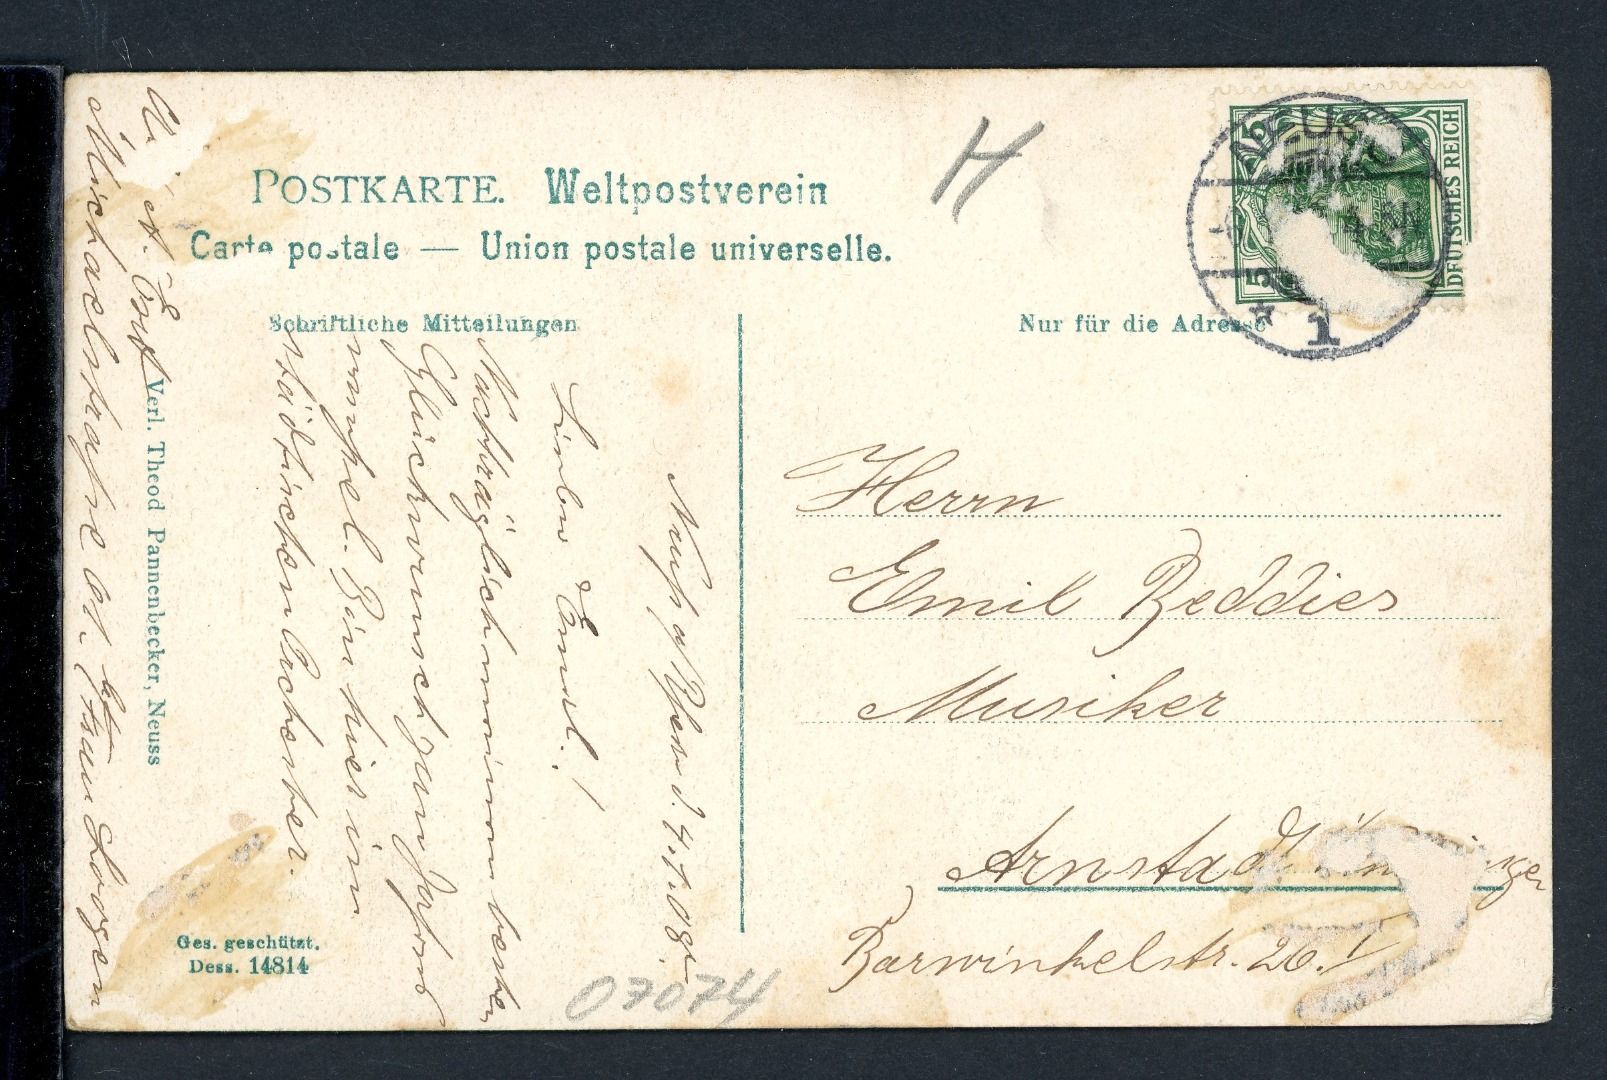 POSTKARTE. Weltpostverein
Carte postale — Union postale universelle.
Schriftliche Mitteilungen
Nur für die Adresse
H
5
5
DEUTSCHES REICH
1
Herrn
Emil Beddies
Musiker
Arnstadt
Barwinkelstr. 26. I
Neuß a/Rhein d. 4.1.08.
Lieber Emil!
Nachträglich meinen besten
Glückwunsch zum Jahres
wechsel. Bin hier im
städtischen Orchester.
Michaelstraße bei Frau Loogen
Verl. Theod Pannenbecker, Neuss
Ges. geschützt.
Dess. 14814
07074